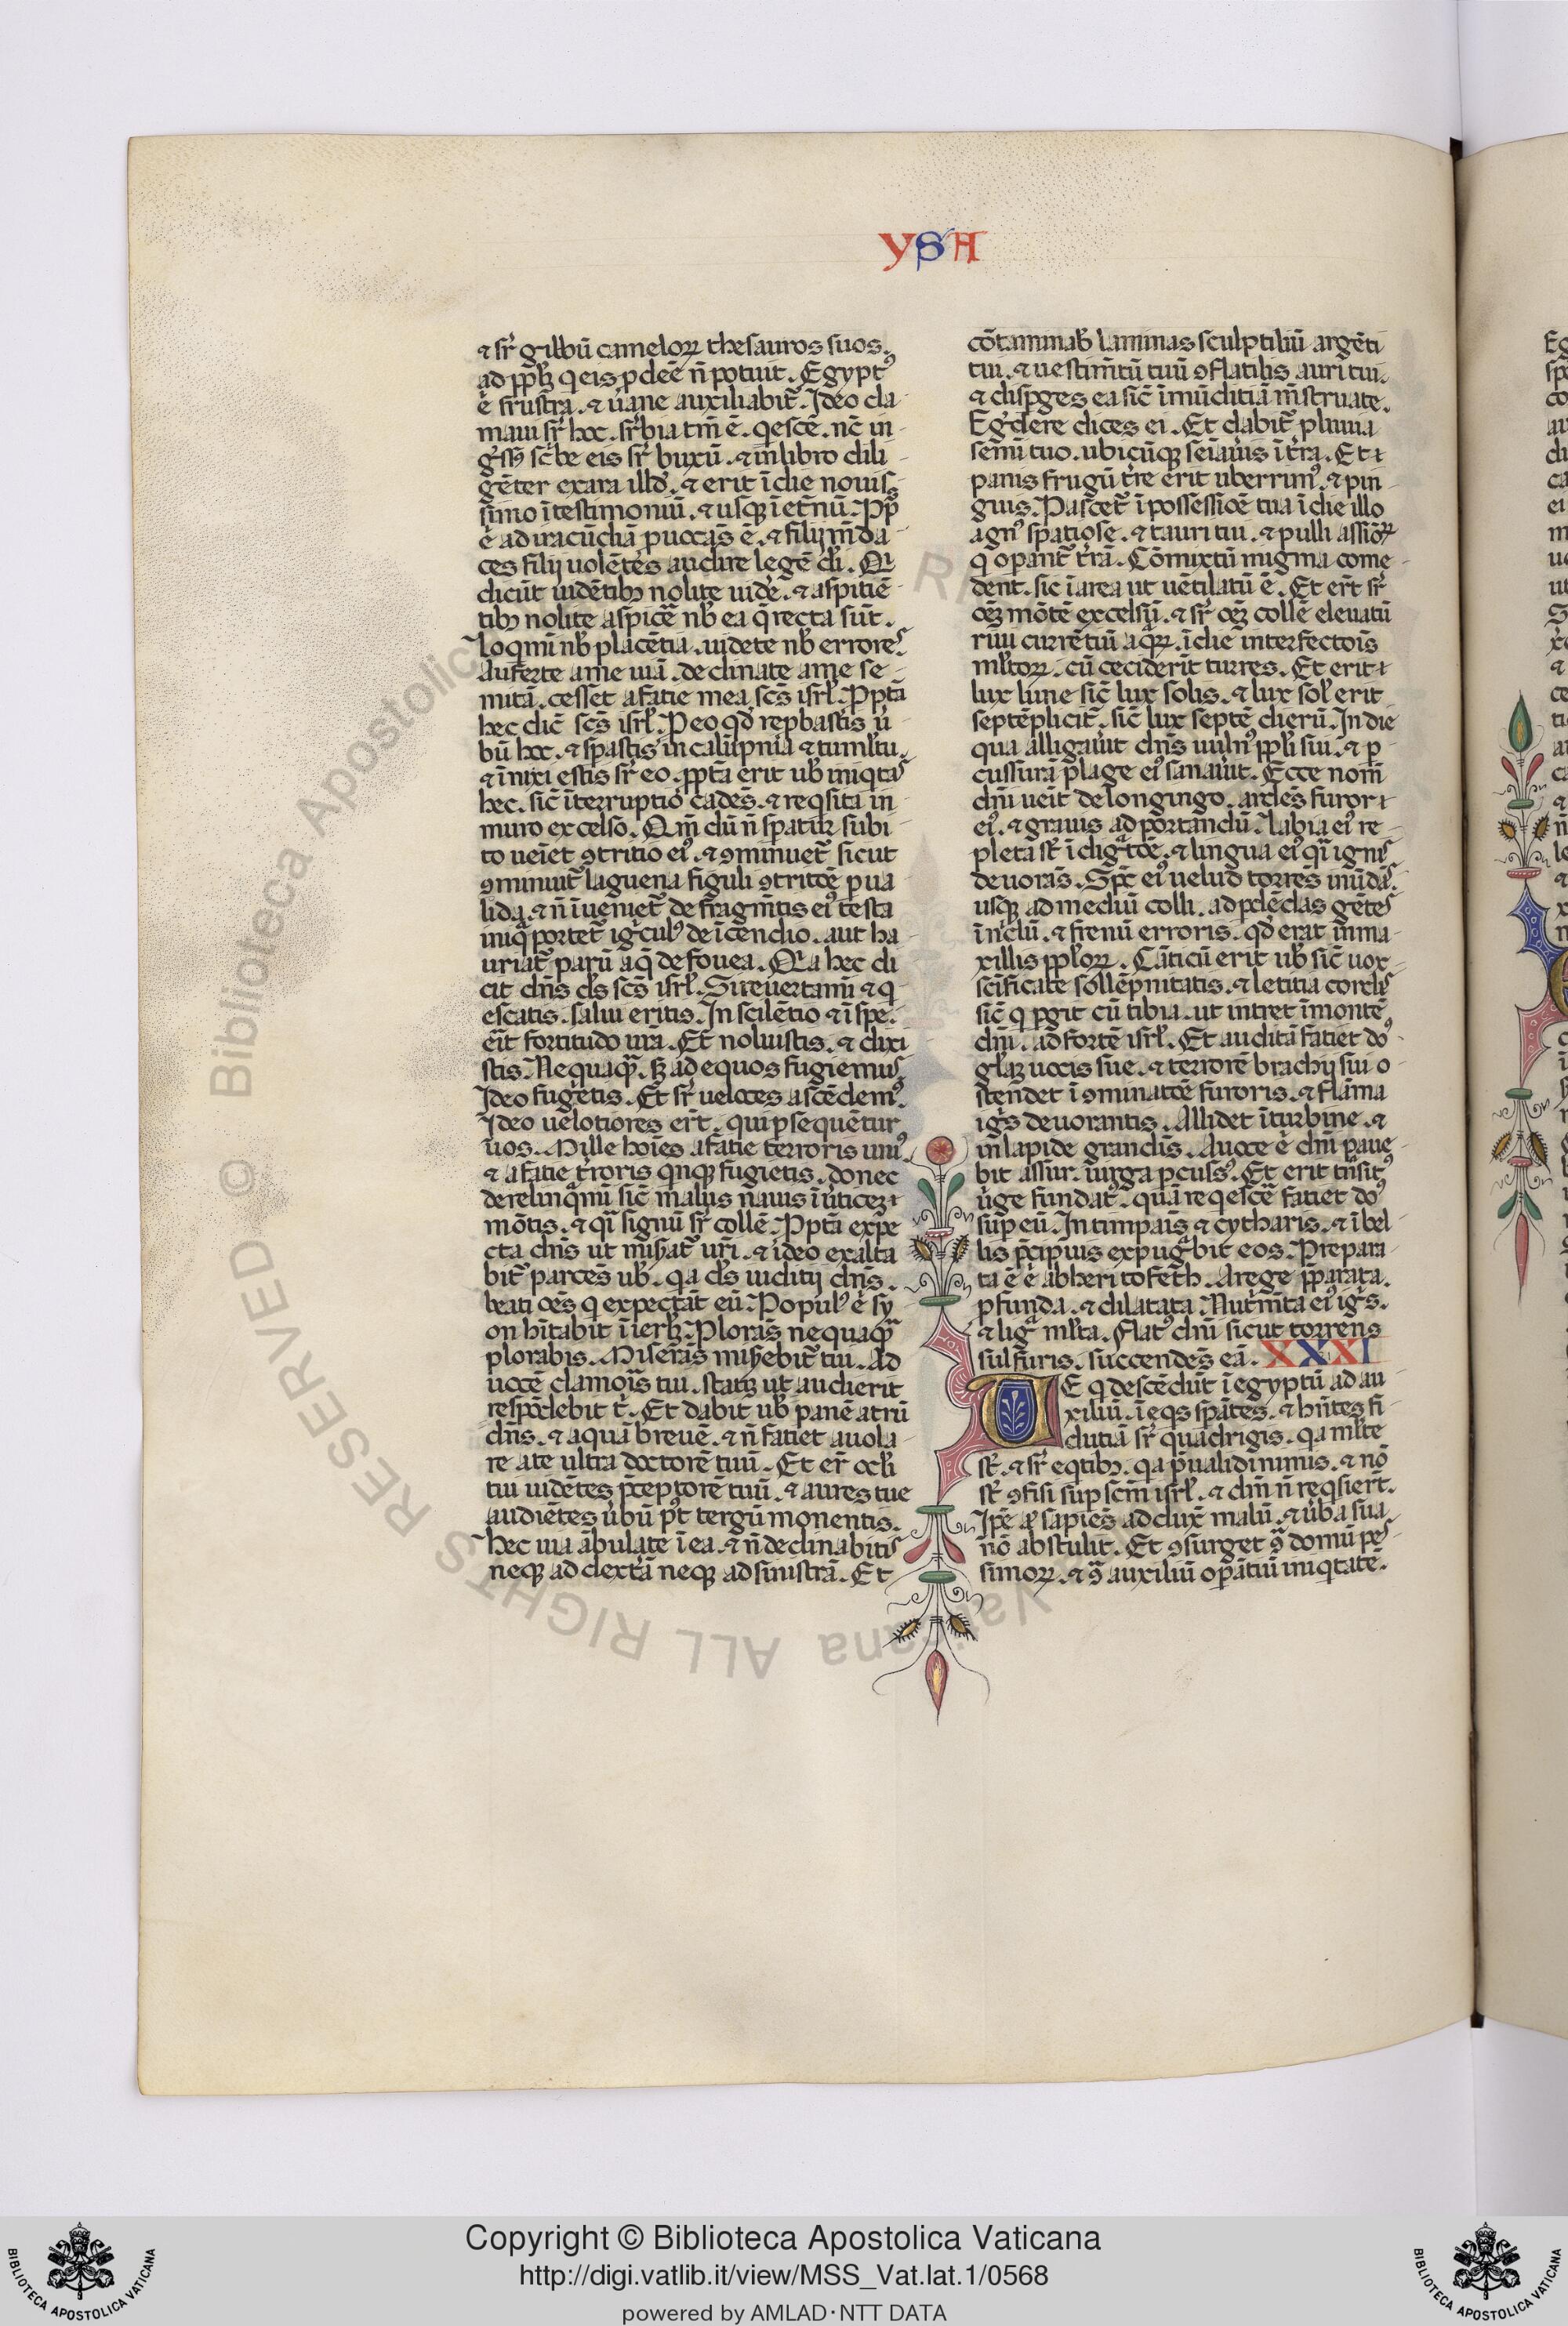 YSA
⁊ sr̄ gibbū cameloꝝ thesauros suos.
ad pp̄lꝫ q eis ꝓdeē n̄ potuit. Egyptꝰ
ē frustra. ⁊ uane auxiliabit̄. Ideo cla
maui sr̄ hoc. sr̄bia tm̄ ē. qescē. nc̄ in
gr̄sꝰ sc̄be eis sr̄ buxū. ⁊ in libro dili
gēter exara illd̄. ⁊ erit ī die nouis
simo ī testimoniū. ⁊ usqꝫ ī et̄nū. Pp̄
ē ad iracūdiā puocās ē. ⁊ filij m̄da
ces filij uolētēs audire legē di. Qi
dicūt uidētibꝫ nolite uidē. ⁊ aspitiē
tibꝫ nolite aspicē nb̄ ea q̄ recta sūt.
loqmī nb̄ placētia. uidete nb̄ errores
Auferte a me uiā. declinate a me se
mitā. cesset a fatie mea sc̄s isrl̄. Ppt̄a
hec dic̄ sc̄s isrl̄. P eo qd̄ repbastis ū
bū hoc. ⁊ sp̄astis in calūpnia ⁊ tuml̄tu.
⁊ īnixi estis sr̄ eo. ppt̄a erit ub̄ iniqtas
hec. sic̄ īterruptio cadēs. ⁊ reqsita in
muro excelso. Qm̄ dū n̄ sp̄atur subi
to ueīet ꝯtritio eiꝰ. ⁊ ꝯminuet̄ sicut
ꝯminuit̄ laguena figuli ꝯtritōe p ua
lida. ⁊ n̄ īueniet̄ de fragm̄tis eiꝰ testa
in q̄ portet̄ igculꝰ de īcendio. aut ha
uriat̄ parū aq̄ de fouea. Qa hec di
cit dn̄s ds̄ sc̄s isrl̄. Si reuertamī ⁊ q
escatis. salui eritis. In scilētio ⁊ ī spe.
eīt fortitudo ur̄a. Et noluistis. ⁊ dixi
stis. Nequaq̄. sꝫ ad equos fugiemus
Ideo fugetis. Et sr̄ ueloces ascēdemꝰ.
Ideo uelotiores er̄t. qui psequētur
uos. Mille hoīes a fatie terroris uniꝰ.
⁊ a fatie t̄roris qnqꝫ fugietis. donec
derelinqmī sic̄ malus nauis ī ūticez
mōtis. ⁊ q̄i signū sr̄ collē. Ppt̄a expe
cta dn̄s ut mis̄at̄ ur̄i. ⁊ ideo exalta
bit̄ parcēs ub̄. qa ds̄ iuditij dn̄s.
beati oēs q expectāt eū. Populꝰ ē sy
on hītabit ī ierlꝫ. Ploras nequaq̄
plorabis. Miserās misebit̄ tui. Ad
uocē clamoīs tui. statꝫ ut audierit
respōdebit t̄. Et dabit ub̄ panē atrū
dn̄s. ⁊ aquā breuē. ⁊ n̄ fatiet auola
re a te ultra doctorē tuū. Et er̄ ocl̄i
tui uidētes p̄ceptorē tuū. ⁊ aures tue
audiētes ūbū pt̄ tergū monentis.
hec uia ābulate ī ea. ⁊ n̄ declinabitis
neqꝫ ad dextā neqꝫ ad sinistrā. Et
cōtaminab̄ laminas sculptiliū argēti
tui. ⁊ uestimt̄ū tuū ꝯflatilis auri tui.
⁊ dispges ea sic̄ īmūditiā m̄struate.
Egdere dices ei. Et dabit̄ pluuia
semī tuo. ubicūqꝫ seīauīs ī t̄ra. Et
panis frugū t̄re erit uberrimꝰ. ⁊ pin
guis. Pascet̄ ī possessiōe tua ī die illo
agnꝰ spatiose. ⁊ tauri tui. ⁊ pulli assiōꝝ
q opant̄ t̄rā. Cōmixtū migma come
dent. sic ī area ut uētilatū ē. Et er̄t sr̄
oēꝫ mōtē excelsū. ⁊ sr̄ oēꝫ collē eleuatū
riui currētiū aq̄ꝝ. ī die interfectoīs
ml̄toꝝ. cū ceciderīt turres. Et erit
lux lune sic̄ lux solis. ⁊ lux sol̄ erit
septēplicit̄. sic̄ lux septē dierū. In die
qua alligauīt dn̄s uulnꝰ ppl̄i sui. ⁊ p
cussurā plage eiꝰ sanauīt. Ecce nom̄
dn̄i ueīt de longingo. ardēs furor
eiꝰ. ⁊ grauis ad portandū. labia eiꝰ re
pleta st̄ īdiḡtōe. ⁊ lingua eiꝰ q̄i ignis
deuorās. Sp̄c eiꝰ uelud torrēs inūdās.
usqꝫ ad mediū colli. ad pdēdas gētes
ī n̄clū. ⁊ frenū erroris. qd̄ erat in ma
xillis ppl̄oꝝ. Cāticū erit ub̄ sic̄ uox
sc̄ificate sollēpnitatis. ⁊ letitia cordis
sic̄ q pgit cū tibia. ut intret ī montē
dn̄i. ad fortē isrl̄. Et auditā fatiet do
gl̄aꝫ uocis sue. ⁊ terrorē brachij sui o
stendet ī ꝯminatōe furoris. ⁊ flāma
igs deuorantis. Allidet ī turbine. ⁊
in lapide grandīs. A uoce ē dn̄i paue
bit assur. uirga pcussꝰ. Et erit tn̄sitꝰ
ūge fundatꝰ. quā reqescē fatiet do
sup eū. In timpaīs ⁊ cytharis. ⁊ ī bel
lis p̄cipuis expugbit eos. Prepara
ta ē ē ab heri tofeth. A rege pp̄arata.
pfunda. ⁊ dilatata. Nutrm̄ta eiꝰ igs.
⁊ liḡ ml̄ta. Flatꝰ dn̄i sicut torrens
sulfuris. succendēs eā. XXXI
UE q descēdūt ī egyptū ad au
xiliū. ī eqs sp̄ātes. ⁊ hn̄tes fi
dutiā sr̄ quadrigis. qa ml̄te
st̄. ⁊ sr̄ eqtibꝫ. qa pualidi nimis. ⁊ nō
st̄ ꝯfisi sup scm̄ isrl̄. ⁊ dm̄ n̄ reqsiert̄.
Ipē āt sapiēs adduxͭ malū. ⁊ ūba sua
nō abstulit. Et ꝯsurget ꝯ̄ domū pes
simoꝝ. ⁊ ꝯ̄ auxiliū opātiū iniqtatē.
Copyright © Biblioteca Apostolica Vaticana
http://digi.vatlib.it/view/MSS_Vat.lat.1/0568
powered by AMLAD·NTT DATA
BIBLIOTECA APOSTOLICA VATICANA
BIBLIOTECA APOSTOLICA VATICANA
© Biblioteca Apostolica Vaticana ALL RIGHTS RESERVED